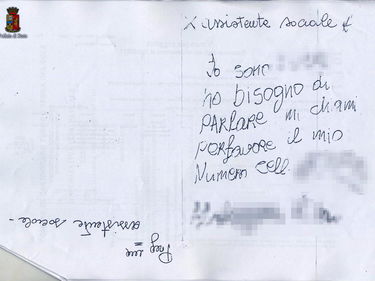 Polizia di Stato
X assistente sociale
Io sono
ho bisogno di
PARLARE mi chiami
PERFAVORE il mio
Numero cell.
assistente sociale -